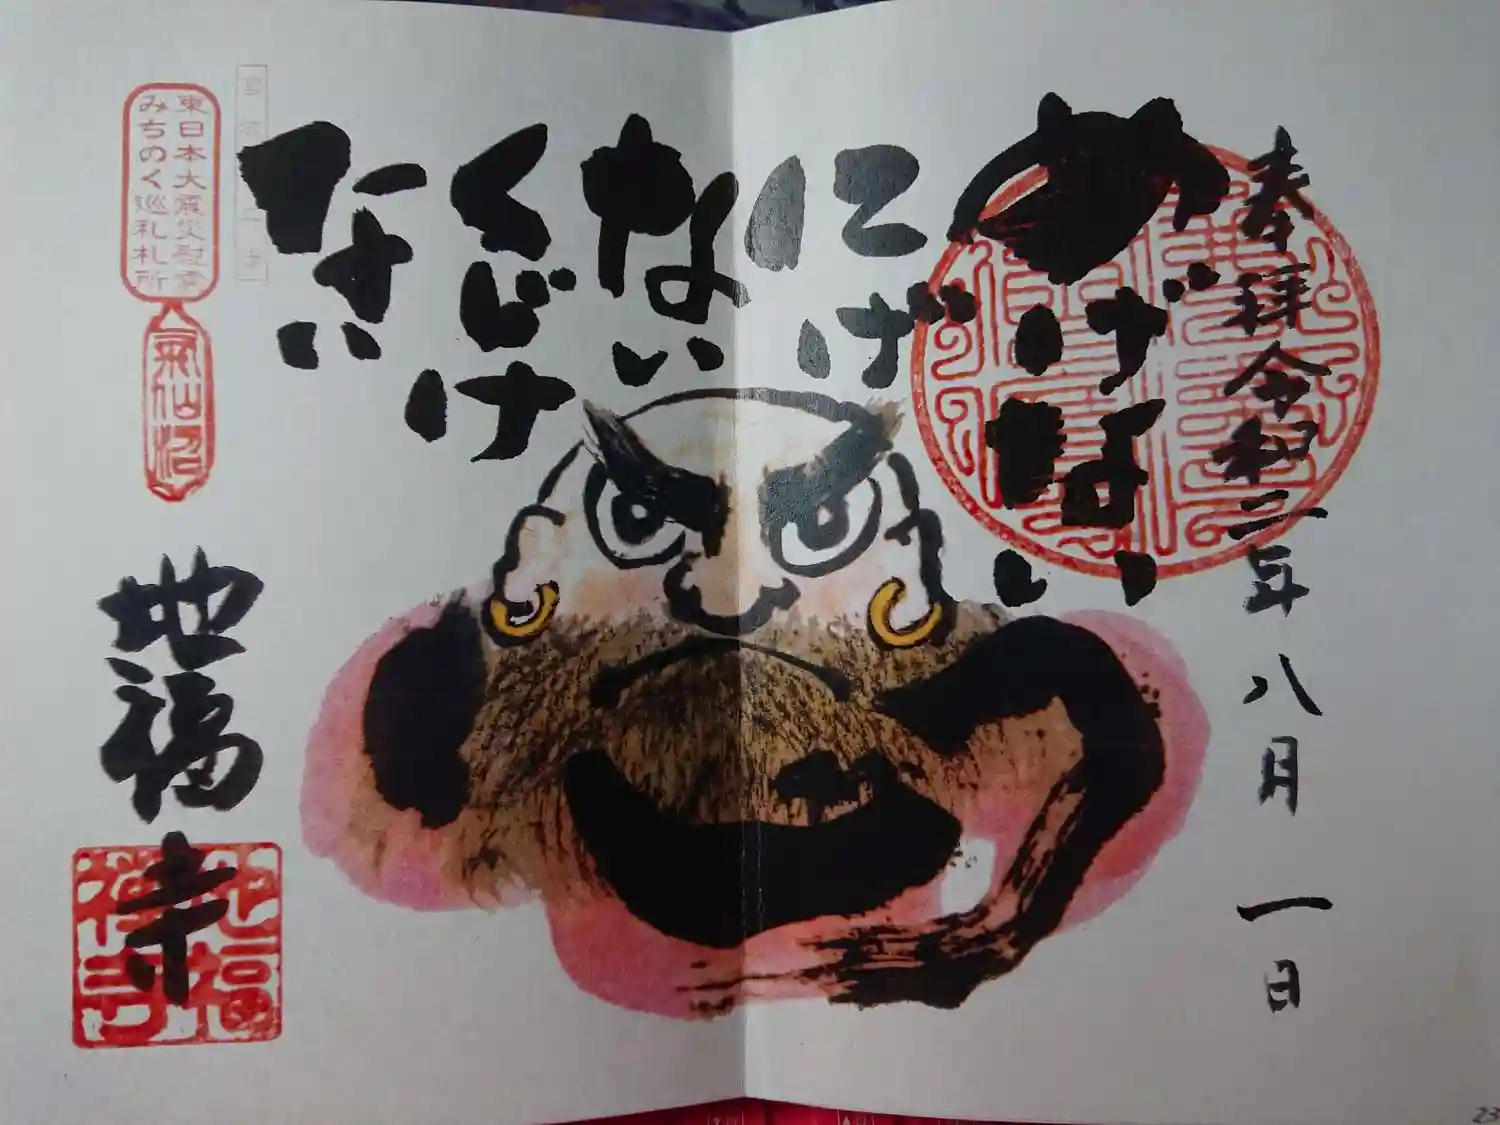 奉拝 令和二年八月一日
めげない
にげ
ない
くじけ
ない
東日本大震災慰霊
みちのく巡礼札所
気仙沼
地福寺
地福
禅寺
23